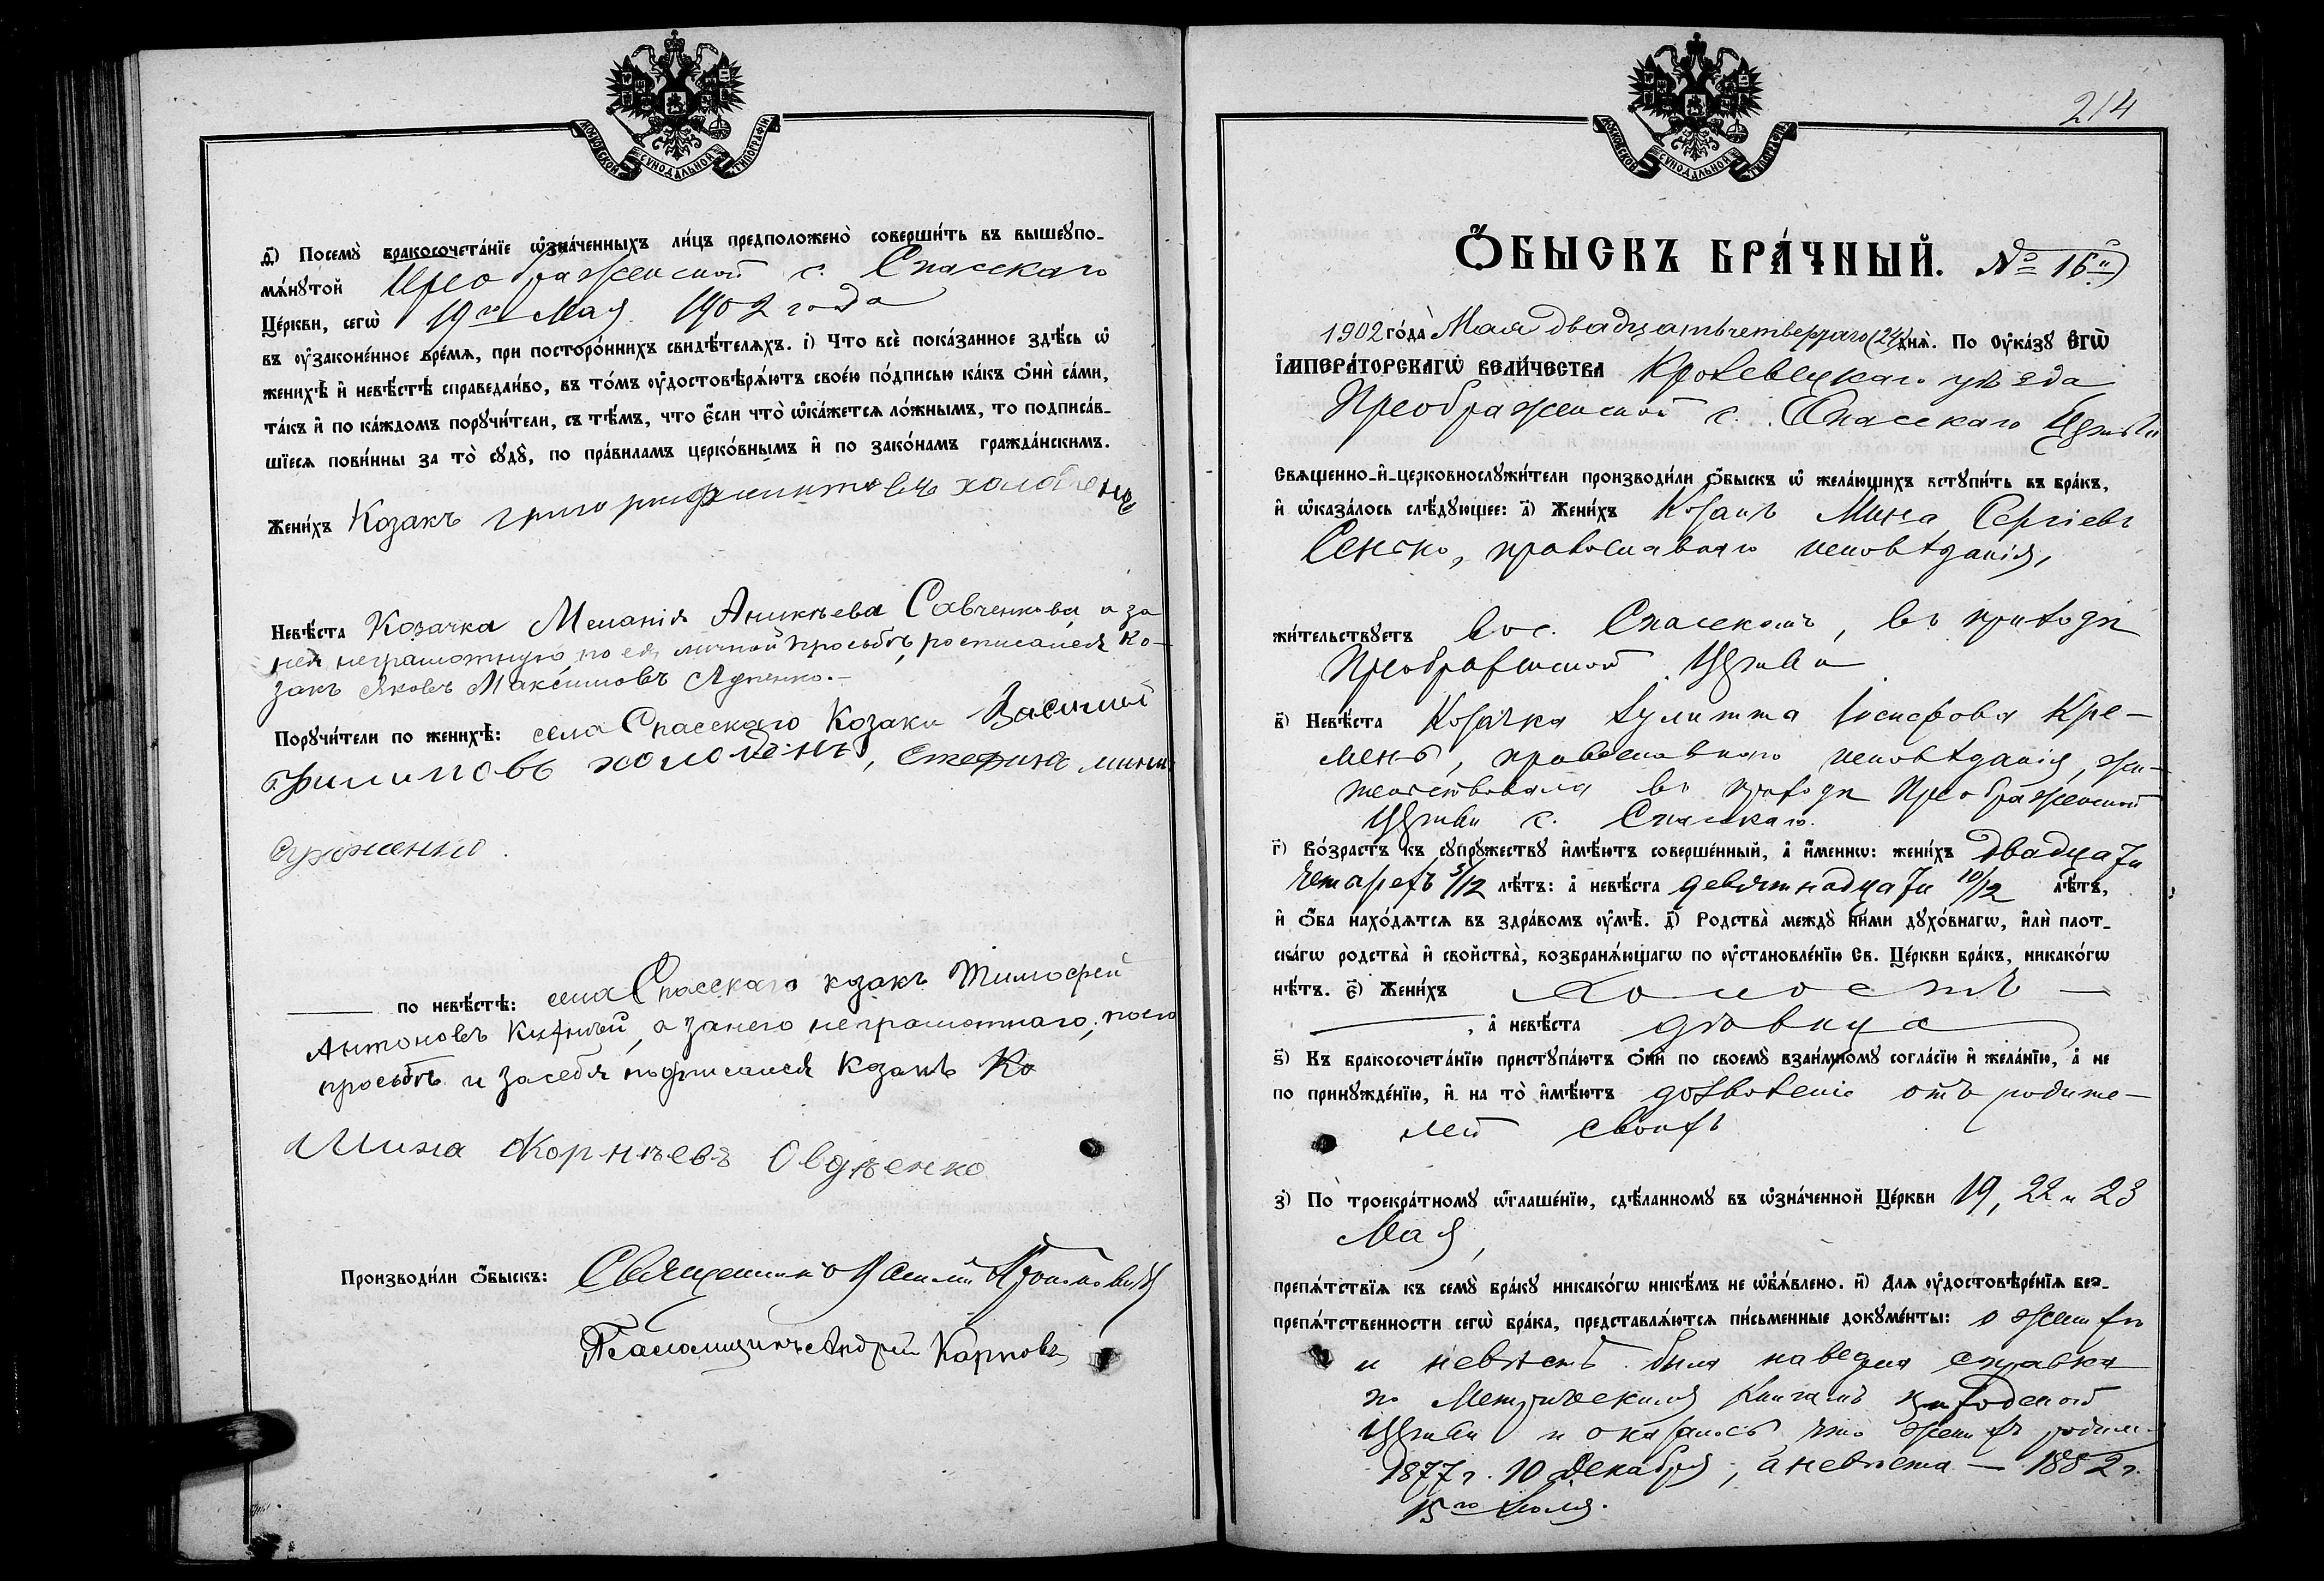 МОСКОВСКОЙ СѴНОДАЛЬНОЙ ТИПОГРАФІИ
д҃) Посемꙋ̀ бракосочета́нїе ѡ҆зна́ченныхъ ли́цъ предположено̀ соверши́ть въ вышеꙋпо-
мѧ́нꙋтой Преображенской с. Спасскаго
Це́ркви, сегѡ̀ 19го Мая 1902 года
въ ᲂу҆законе́нное вре́мѧ, при посторо́ннихъ свидѣ́телѧхъ. і) Что̀ всѐ пока́занное здѣ́сь ѡ҆
женихѣ̀ и҆ невѣ́стѣ справедли́во, въ то́мъ ᲂу҆достовѣрѧ́ютъ свое́ю по́дписью ка́къ ѻ҆нѝ са́ми,
та́къ и҆ по ка́ждомъ порꙋчи́тели, съ тѣ́мъ, что є҆́сли что̀ ѡ҆ка́жетсѧ ло́жнымъ, то подписа́в-
шїесѧ пови́нны за то̀ сꙋдꙋ̀, по пра́виламъ церко́внымъ и҆ по зако́намъ гражда́нскимъ.
Жени́хъ Козакъ
Невѣ́ста Козачка Меланія Аникѣева Савченкова а за
нея неграмотную по ея личной просьбѣ росписался Ко-
закъ Яковъ Максимовъ
Порꙋчи́тели по женихѣ̀: села Спасскаго Козаки Василий
Филиповъ холоденъ, Стефанъ
по невѣ́стѣ: села Спасскаго козакъ Тимофей
Антоновъ а занего неграмотнаго, поего
просьбѣ и засебя подписался Козакъ Ко
Мина Корнѣевъ Овдѣенко
Производи́ли ѻ҆́быскъ: Священникъ Василій
Псаломщикъ Андрей Карповъ
214
МОСКОВСКОЙ СѴНОДАЛЬНОЙ ТИПОГРАФІИ
Ѻ҆БЫСКЪ БРА́ЧНЫЙ. № 16й
1902 го́да̀ Мая двадцать четвертаго (24) днѧ̀. По ᲂу҆ка́зꙋ Є҆ГѠ̀
І҆МПЕРА́ТОРСКАГѠ ВЕЛИ́ЧЕСТВА Кролевецкаго уѣзда
Преображенской с. Спасскаго Церкви
Свѧщенно-и҆-церковнослꙋжи́тели производи́ли ѻ҆́быскъ ѡ҆ жела́ющихъ встꙋпи́ть въ бра́къ,
и҆ ѡ҆каза́лось слѣ́дꙋющее: а҃) Жени́хъ Козакъ Мина Сергіевъ
Сенько, православнаго исповѣданія,
жи́тельствꙋетъ въ с. Спасскомъ, въ приходѣ
Преображенской Церкви
в҃) Невѣ́ста Козачка Іулитта Іосифова Кре-
мень, православнаго исповѣданія, жи-
тельствовала въ приходѣ Преображенской
Церкви с. Спасскаго.
г҃) Во́зрастъ къ сꙋпрꙋ́жествꙋ и҆мѣ́ютъ соверше́нный, а҆ и҆́меннѡ: жени́хъ двадцати
четырехъ 5/12 лѣ́тъ: а҆ невѣ́ста девятнадцати 10/12 лѣ́тъ,
и҆ ѻ҆́ба нахо́дѧтсѧ въ здра́вомъ ᲂу҆мѣ̀. д҃) Родства̀ междꙋ̀ ни́ми дꙋхо́внагѡ, и҆лѝ плот-
ска́гѡ родства̀ и҆ свойства̀, возбранѧ́ющагѡ по ᲂу҆становле́нїю Св. Це́ркви бра́къ, никако́гѡ
нѣ́тъ. є҃) Жени́хъ холостъ
, а҆ невѣ́ста дѣвица
ѕ҃) Къ бракосочета́нїю пристꙋпа́ютъ ѻ҆нѝ по своемꙋ̀ взаи́мномꙋ согла́сїю и҆ жела́нїю, а҆ не
по принꙋжде́нїю, и҆ на то̀ и҆мѣ́ютъ дозволеніе отъ родите-
лей своихъ
з҃) По троекра́тномꙋ ѡ҆глаше́нїю, сдѣ́ланномꙋ въ ѡ҆зна́ченной Це́ркви 19, 22 и 23
Мая,
препѧ́тствїѧ къ семꙋ̀ бра́кꙋ никако́гѡ никѣ́мъ не ѡ҆б̾ѧ́влено. и҃) Длѧ ᲂу҆достовѣре́нїѧ без-
препѧ́тственности сегѡ̀ бра́ка, представлѧ́ютсѧ пи́сьменные докꙋме́нты: о женихѣ
и невѣстѣ была наведена справка
по Метрическимъ Книгамъ приходской
Церкви и оказалось, что женихъ родил.
1877 г. 10 Декабря, а невѣста — 1882 г.
15го Іюля.